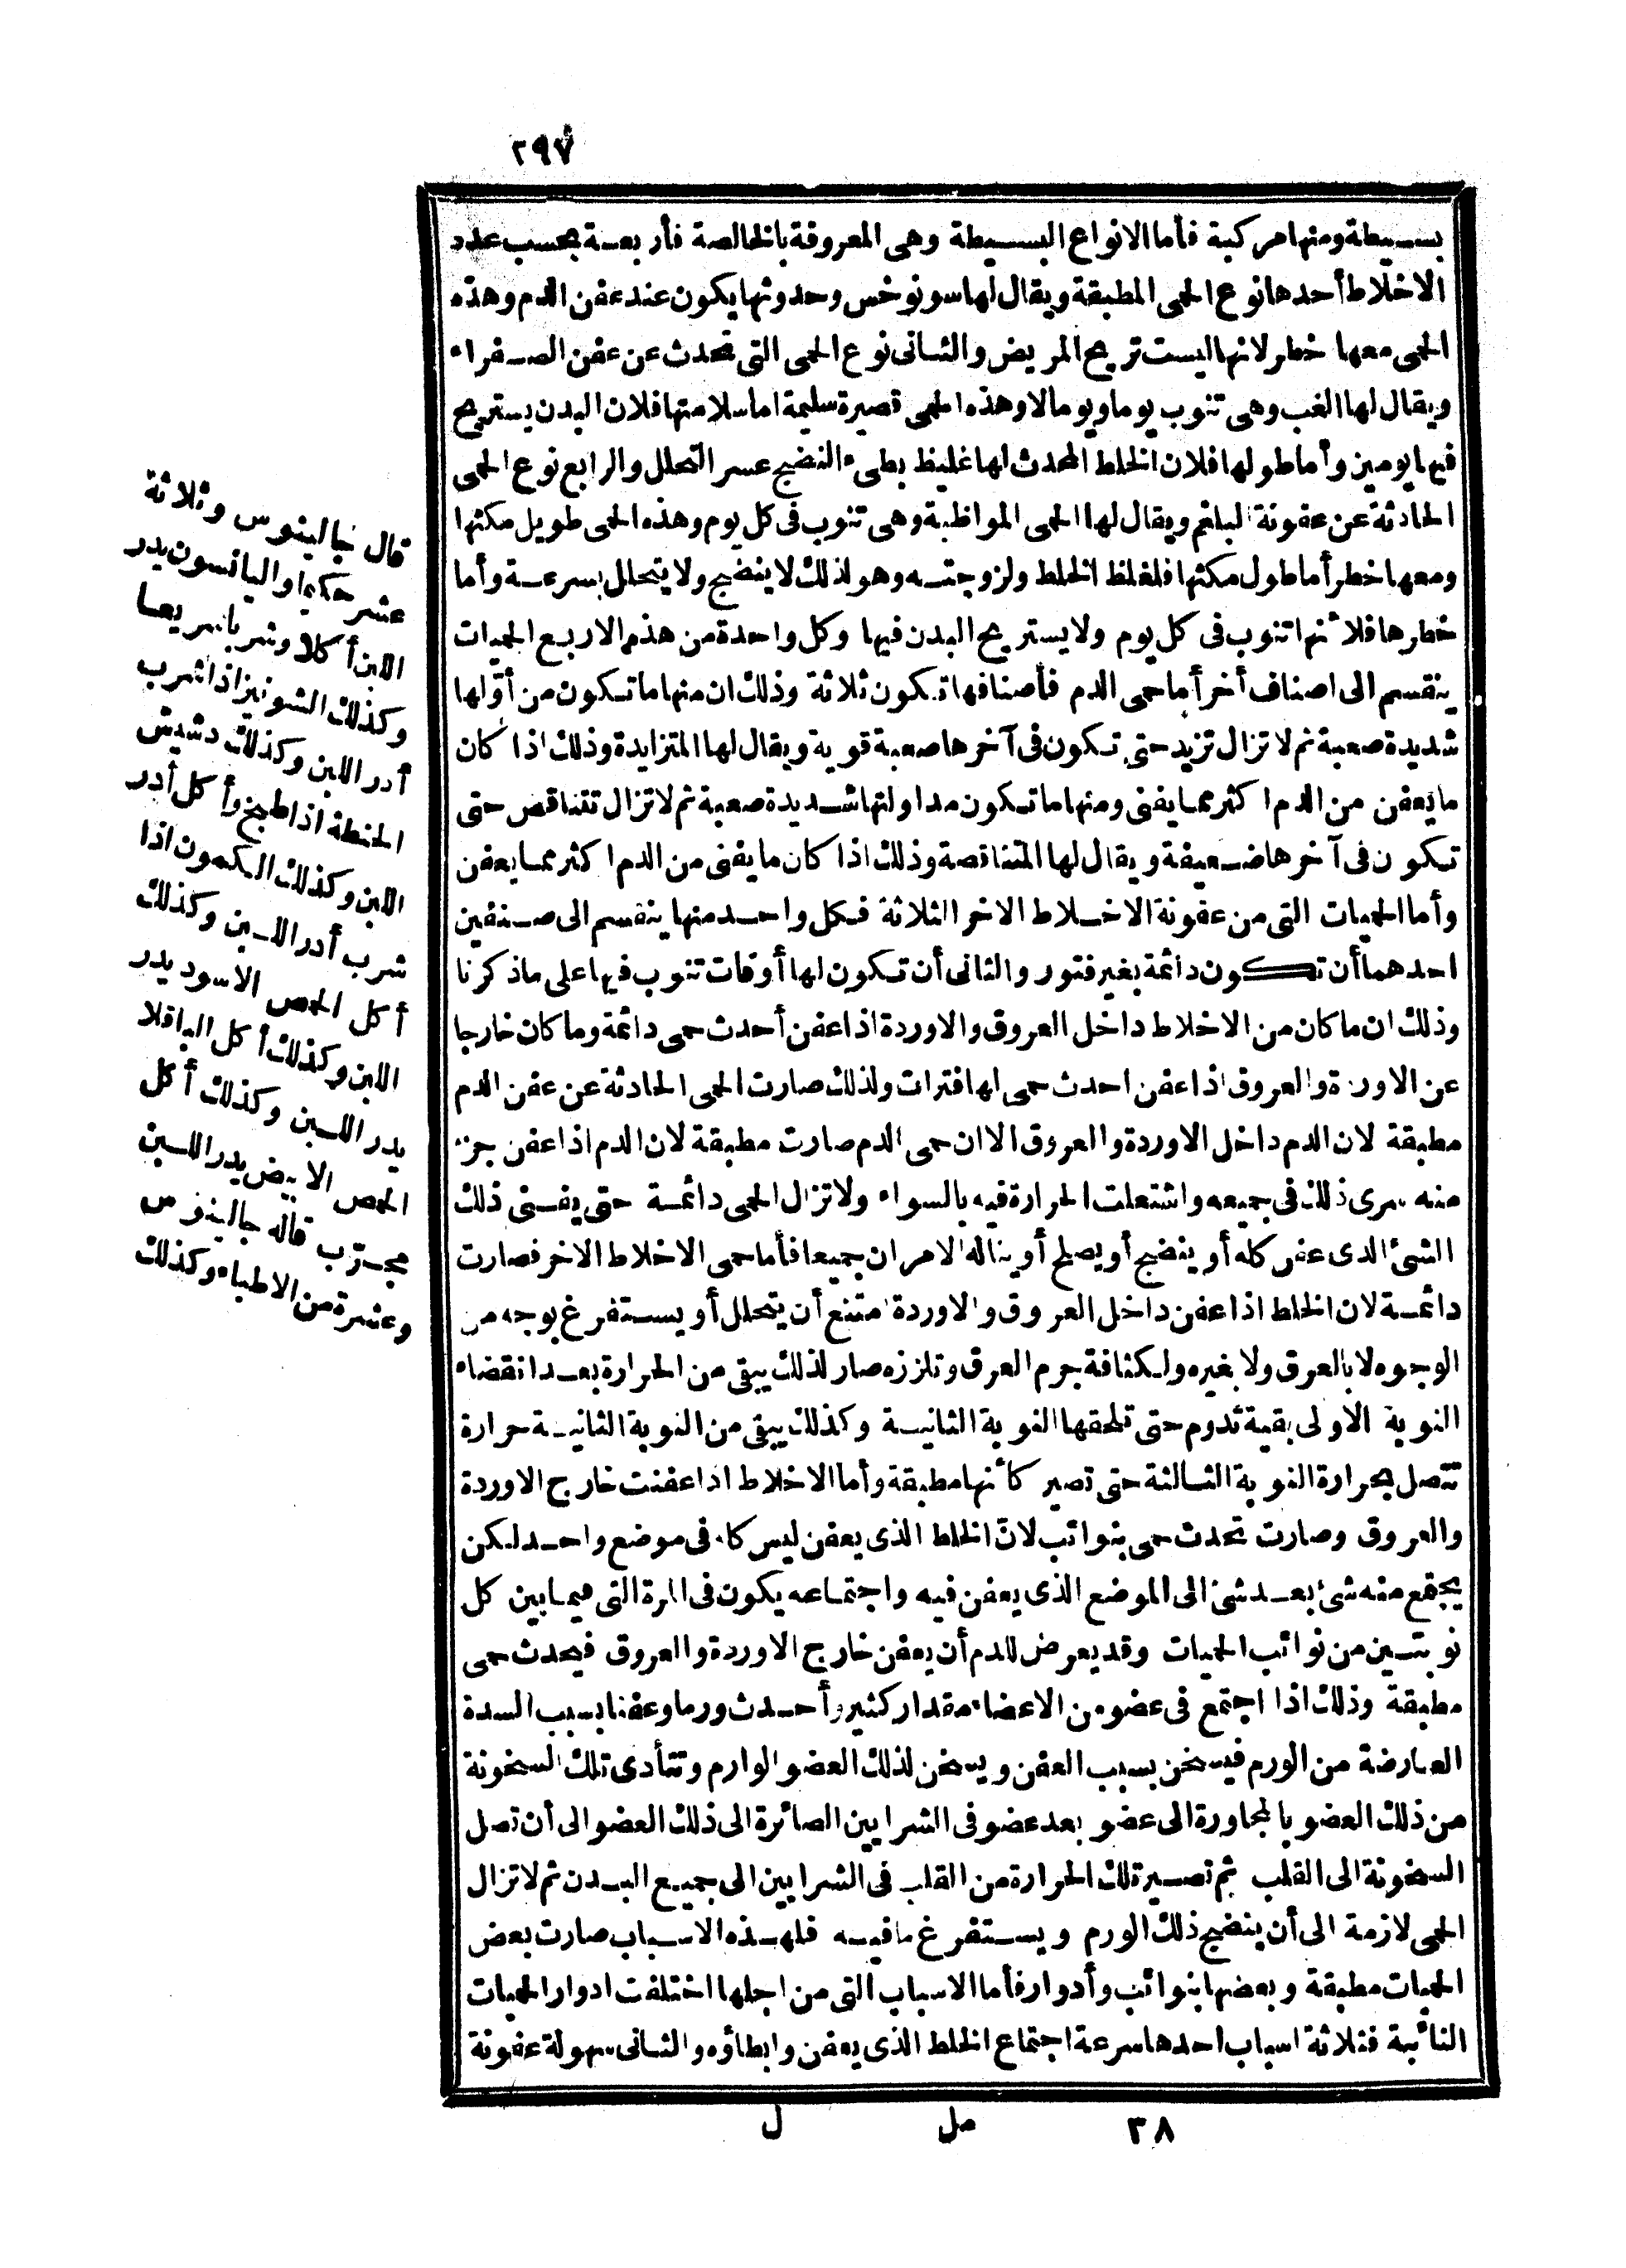 ٢٩٧
بسيطة ومنها مركبة فأما الانواع البسيطة وهى المعروفة بالخالصة فأربعة بحسب عدد
الاخلاط أحدها نوع الحمى المطبقة ويقال لها سونوخس وحدوثها يكون عند عفن الدم وهذه
الحمى معها خطر لانها ليست تريح المريض والثانى نوع الحمى التى تحدث عن عفن الصفراء
ويقال لها الغب وهى تنوب يوما ويوما لا وهذه الحمى قصيرة سليمة اما سلامتها فلان البدن يستريح
فيها يومين وأما طولها فلان الخلط المحدث لها غليظ بطىء النضج عسر التحلل والرابع نوع الحمى
الحادثة عن عفونة البلغم ويقال لها الحمى المواظبة وهى تنوب فى كل يوم وهذه الحمى طويل مكثها
ومعها خطر أما طول مكثها فلغلظ الخلط ولزوجته وهو لذلك لا ينضج ولا يتحلل بسرعة وأما
خطرها فلأنها تنوب فى كل يوم ولا يستريح البدن فيها وكل واحدة من هذه الاربع الحميات
ينقسم الى اصناف أخر أما حمى الدم فأصنافها تكون ثلاثة وذلك ان منها ما تكون من أوّلها
شديدة صعبة ثم لا تزال تزيد حتى تكون فى آخرها صعبة قوية ويقال لها المتزايدة وذلك اذا كان
ما يعفن من الدم اكثر مما يفنى ومنها ما تكون مدا ولتها شديدة صعبة ثم لا تزال تتناقص حتى
تكون فى آخرها ضعيفة ويقال لها المتناقصة وذلك اذا كان ما يفنى من الدم اكثر مما يعفن
وأما الحميات التى من عفونة الاخلاط الاخر الثلاثة فكل واحد منها ينقسم الى صنفين
احدهما أن تكون دائمة بغير فتور والثانى أن تكون لها أوقات تنوب فيها على ما ذكرنا
وذلك ان ما كان من الاخلاط داخل العروق والاوردة اذا عفن أحدث حمى دائمة وما كان خارجا
عن الاوردة والعروق اذا عفن احدث حمى لها فترات ولذلك صارت الحمى الحادثة عن عفن الدم
مطبقة لان الدم داخل الاوردة والعروق الا ان حمى الدم صارت مطبقة لان الدم اذا عفن جزء
منه سرى ذلك فى جميعه واشتعلت الحرارة فيه بالسواء ولا تزال الحمى دائمة حتى يفنى ذلك
الشئ الذى عفن كله أو ينضج أو يصلح أو يناله الامران جميعا فأما حمى الاخلاط الاخر فصارت
دائمة لان الخلط اذا عفن داخل العروق والاوردة امتنع أن يتحلل أو يستفرغ بوجه من
الوجوه لا بالعرق ولا بغيره ولكثافة جرم العرق وتلززه صار لذلك يبقى من الحرارة بعد انقضاء
النوبة الاولى بقية تدوم حتى تلحقها النوبة الثانية وكذلك يبقى من النوبة الثانية حرارة
تتصل بحرارة النوبة الثالثة حتى تصير كأنها مطبقة وأما الاخلاط اذا عفنت خارج الاوردة
والعروق وصارت تحدث حمى بنوائب لانّ الخلط الذى يعفن ليس كله فى موضع واحد لكن
يجتمع منه شئ بعد شئ الى الموضع الذى يعفن فيه واجتماعه يكون فى المرة التى فيما بين كل
نوبتين من نوائب الحميات وقد يعرض للدم أن يعفن خارج الاوردة والعروق فيحدث حمى
مطبقة وذلك اذا اجتمع فى عضو من الاعضاء مقدار كثير وأحدث ورما وعفنا بسبب السدة
العارضة من الورم فيسخن بسبب العفن ويسخن لذلك العضو الوارم وتتأدى تلك السخونة
من ذلك العضو بالمجاورة الى عضو بعد عضو فى الشرايين الصائرة الى ذلك العضو الى أن تصل
السخونة الى القلب ثم تصير تلك الحرارة من القلب فى الشرايين الى جميع البدن ثم لا تزال
الحمى لازمة الى أن ينضج ذلك الورم ويستفرغ ما فيه فلهذه الاسباب صارت بعض
الحميات مطبقة وبعضها بنوائب وأدوار فأما الاسباب التى من اجلها اختلفت ادوار الحميات
النائبة فثلاثة اسباب احدها سرعة اجتماع الخلط الذى يعفن وابطاؤه والثانى سهولة عفونة
٣٨ مل ل
قال جالينوس وثلاثة
عشر حكيما واليانسون يدر
اللبن أكلا وشربا سريعا
وكذلك الشونيز اذا شرب
أدر اللبن وكذلك دشيش
الحنطة اذا طبخ وأكل أدر
اللبن وكذلك الكمون اذا
شرب أدر اللبن وكذلك
أكل الحمص الاسود يدر
اللبن وكذلك أكل الباقلا
يدر اللبن وكذلك أكل
الحمص الابيض يدر اللبن
مجرّب قاله جالينوس
وعشرة من الاطباء وكذلك